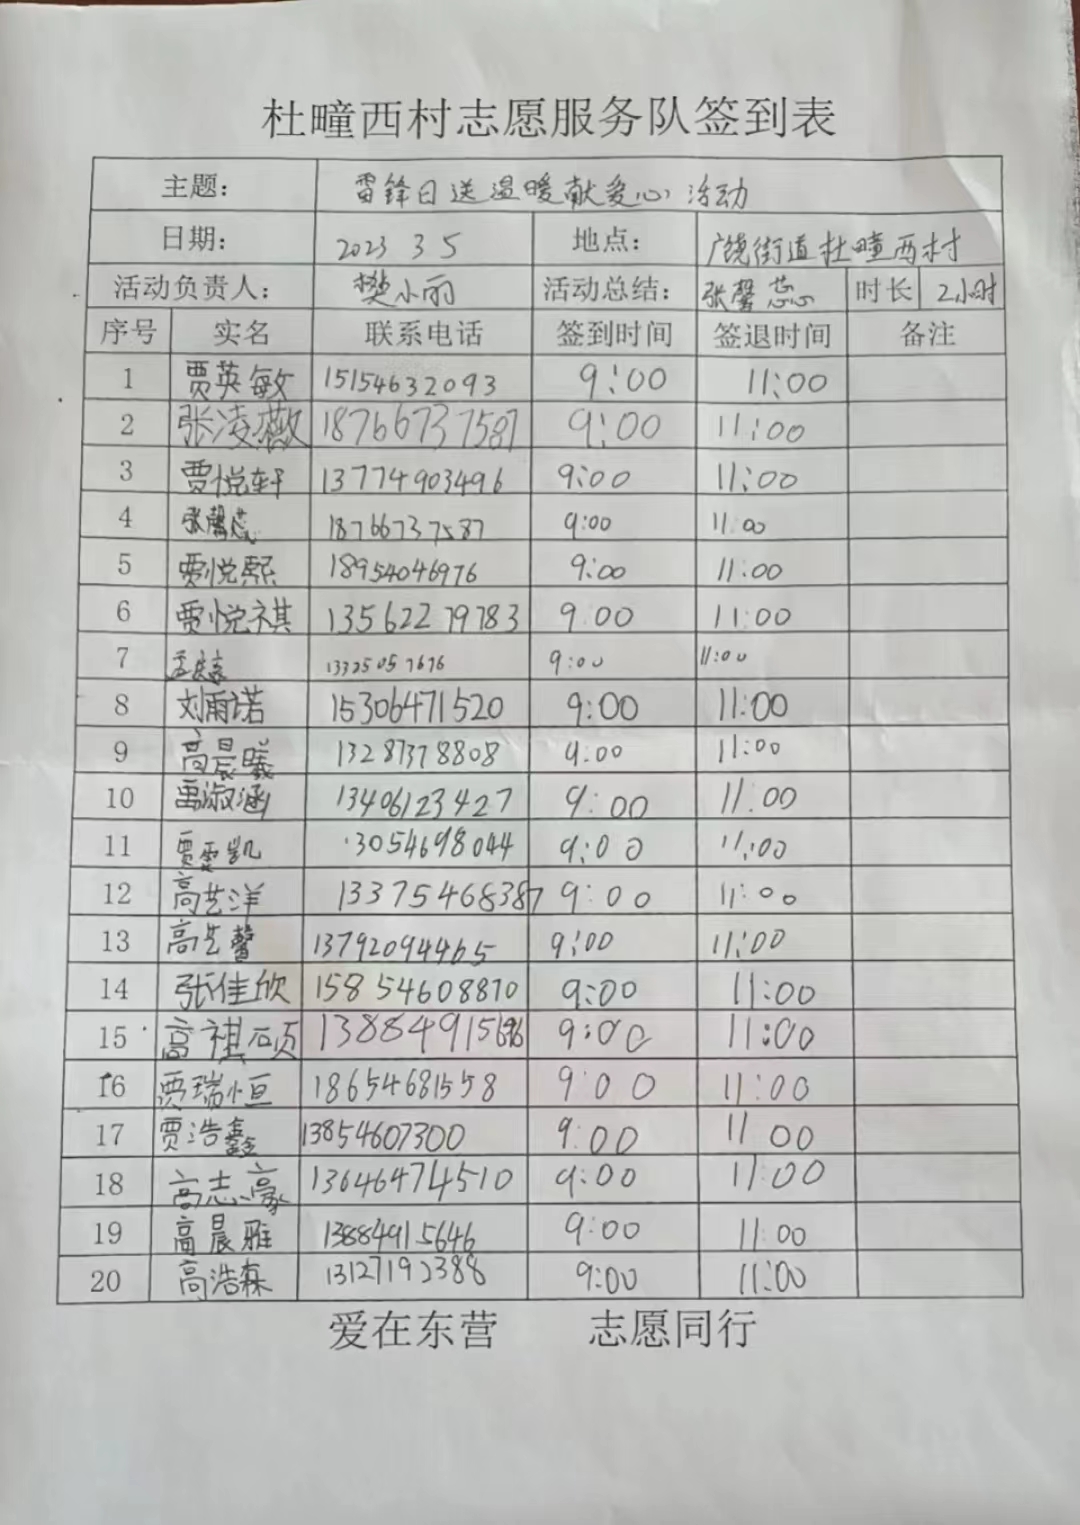 杜疃西村志愿服务队签到表
主题： 雷锋日送温暖献爱心活动
日期： 2023 3 5 地点： 广饶街道杜疃西村
活动负责人： 樊小丽 活动总结： 张馨蕊 时长 2小时
序号 实名 联系电话 签到时间 签退时间 备注
1 贾英敏 15154632093 9:00 11:00
2 张凌薇 18766737587 9:00 11:00
3 贾悦轩 13774903496 9:00 11:00
4 张馨蕊 18766737587 9:00 11:00
5 贾悦熙 18954046976 9:00 11:00
6 贾悦祺 13562279783 9:00 11:00
7 13325057676 9:00 11:00
8 刘雨诺 15306471520 9:00 11:00
9 高晨曦 13287378808 9:00 11:00
10 淑涵 13406123427 9:00 11:00
11 贾雲凯 13054698044 9:00 11:00
12 高艺洋 13375468387 9:00 11:00
13 高艺馨 13792094465 9:00 11:00
14 张佳欣 15854608870 9:00 11:00
15 高祺硕 9:00 11:00
16 贾瑞恒 18654681558 9:00 11:00
17 贾浩鑫 13854607300 9:00 11:00
18 高志豪 13646474510 9:00 11:00
19 高晨雅 13884915646 9:00 11:00
20 高浩森 13127192388 9:00 11:00
爱在东营 志愿同行